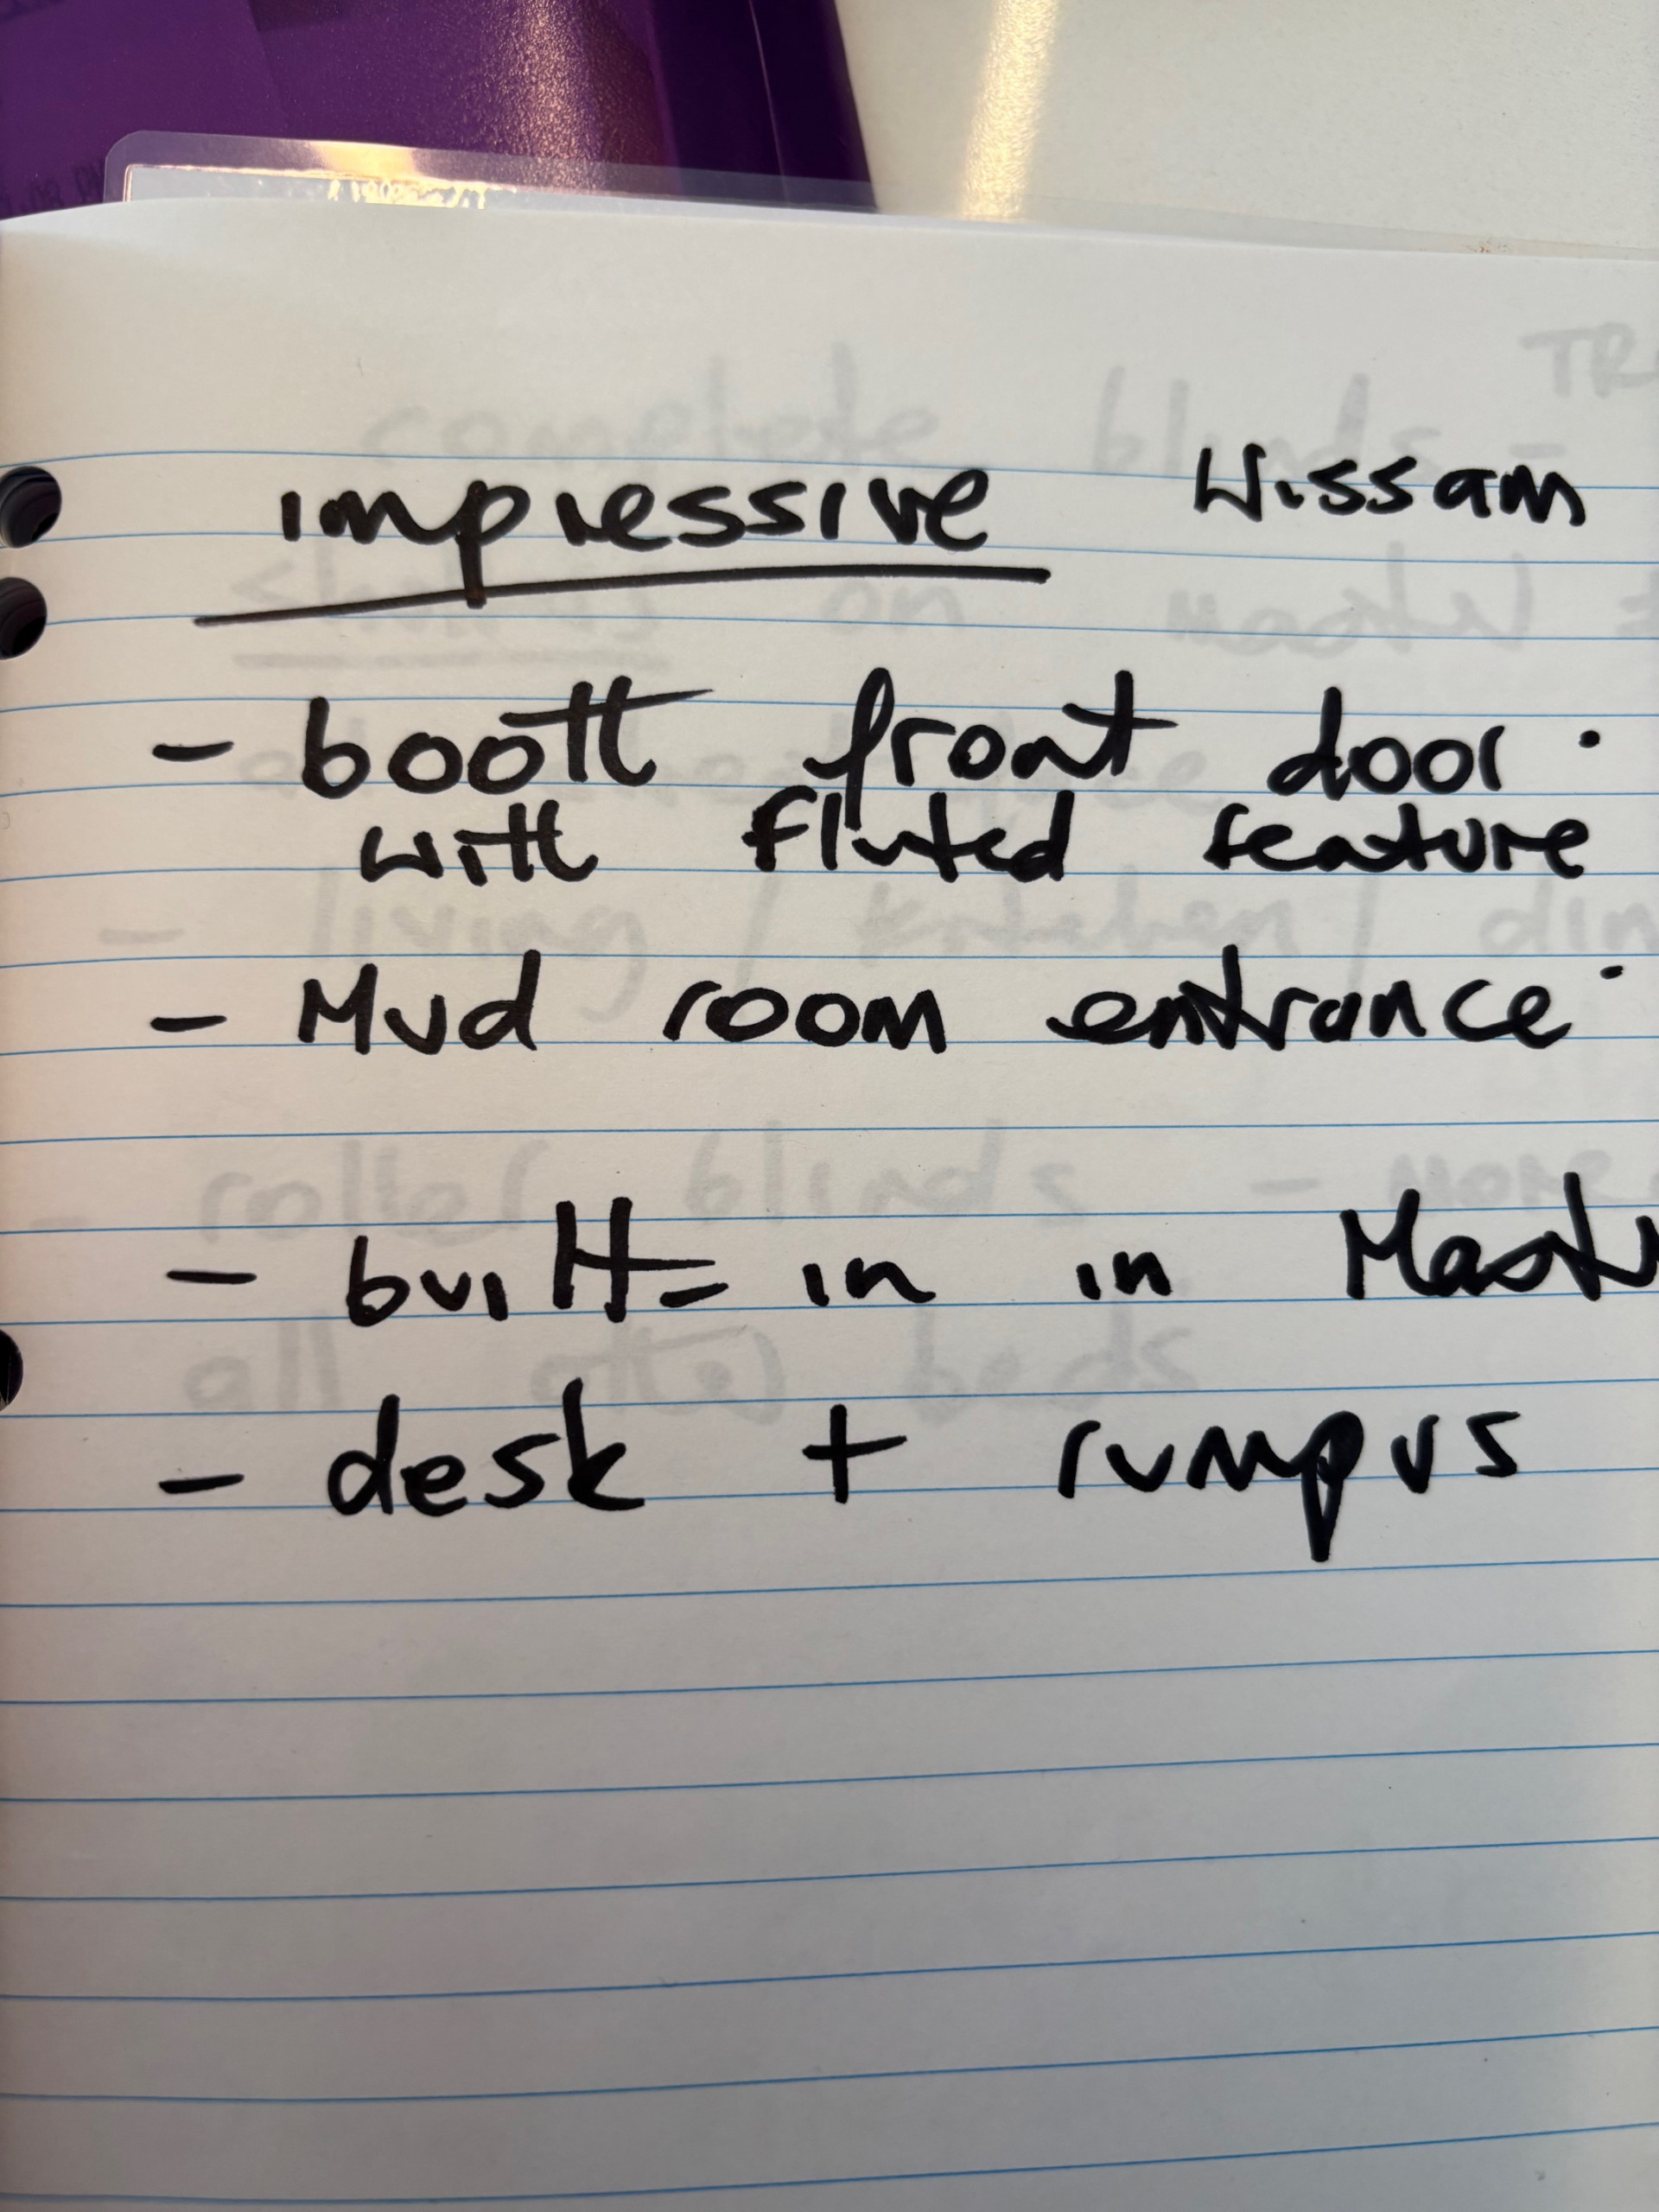 impressive Wissam
- booth front door .
with fluted feature
- Mud room entrance .
- built-in in
- desk + rumpus